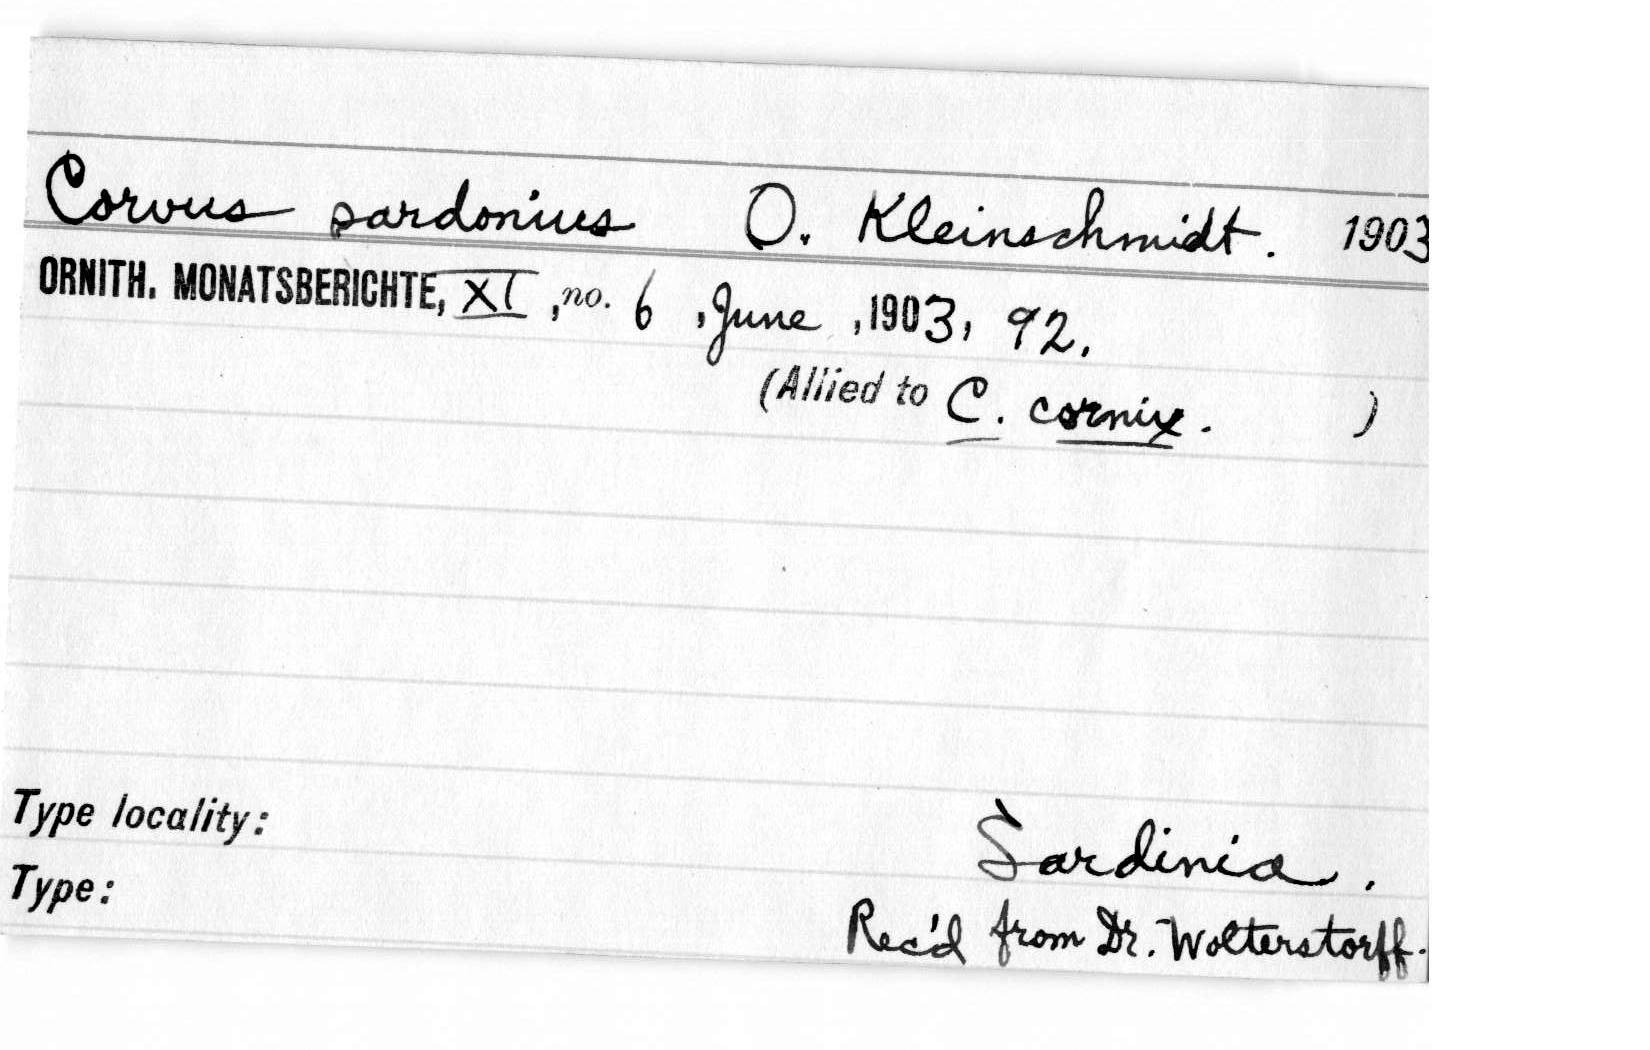 Corvus sardonius O. Kleinschmidt. 1903
ORNITH. MONATSBERICHTE, XI, no. 6, June, 1903, 92.
(Allied to C. cornix. )
Type locality: Sardinia.
Type: Rec'd from Dr. Wolterstorff.